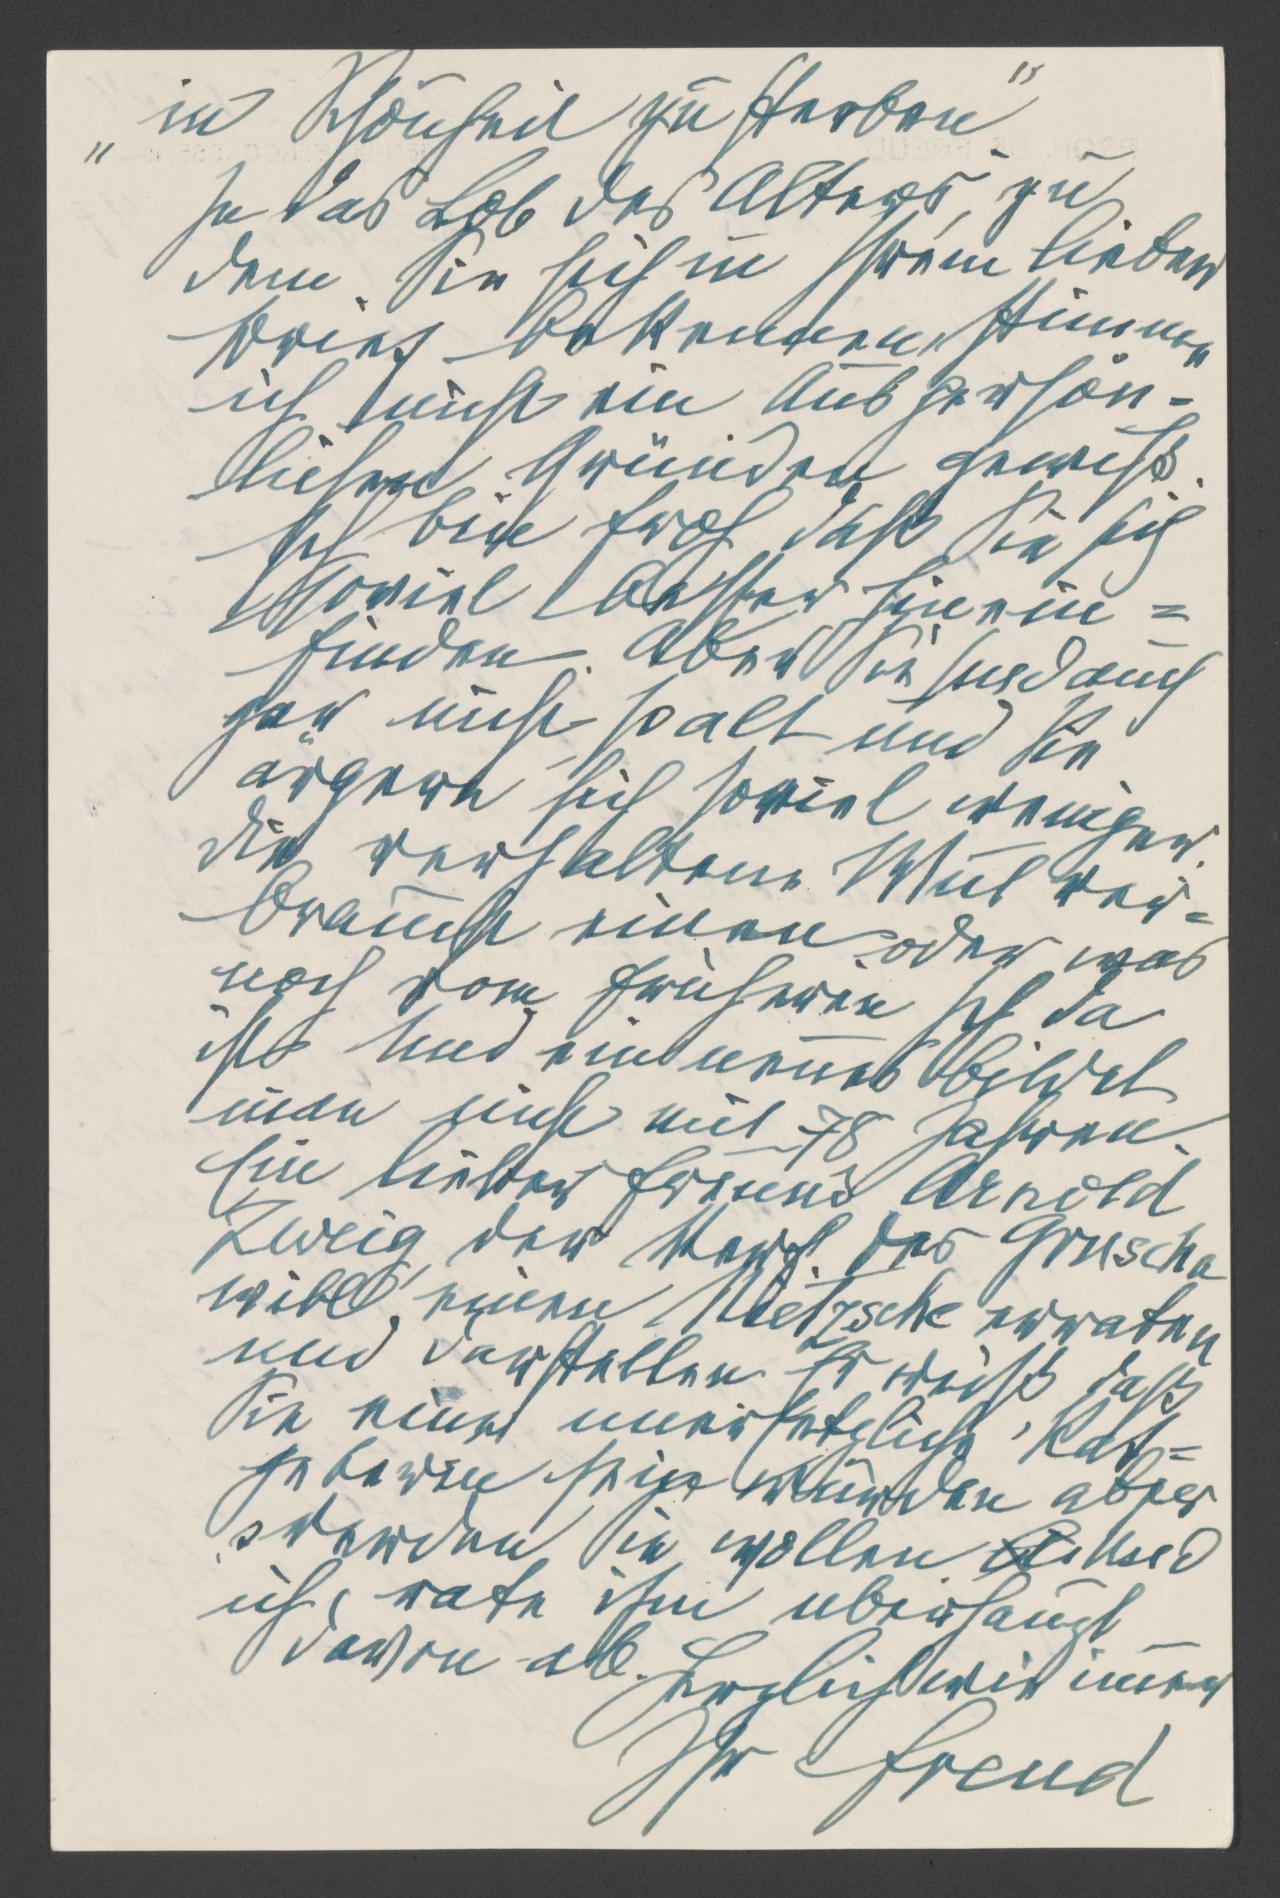 „in Schönheit zu sterben"
In das Lob des Alters, zu
dem Sie sich in Ihrem lieben
Brief bekennen, stimme
ich nicht ein aus persön=
lichen Gründen gewiß.
Ich bin froh daß Sie sich
soviel besser hinein=
finden. Aber Sie sind auch
gar nicht so alt und Sie
ärgern sich soviel weniger.
Die verhaltene Wut ver=
braucht einen oder was
noch vom früheren Ich da
ist. Und ein neues bildet
man nicht mit 78 Jahren.
Ein lieber Freund Arnold
Zweig, der Verf. des Gruscha
will einen Nietzsche erraten
und darstellen. Er weiß daß
Sie eine unersetzliche Rat=
geberin sein würden aber
werden Sie wollen Und
ich, rate ihm überhaupt
davon ab.
Herzlich wie immer
Ihr Freud
PROF. DR. FREUD